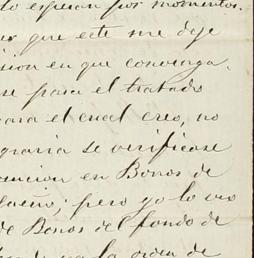 lo esperan por momentos.
que este me deje
sion en que convenga.
se para el tratado
para el cual creo, no
graria se verificase
en Bonos de
pero yo lo veo
de Bonos del fondo de
la orden de